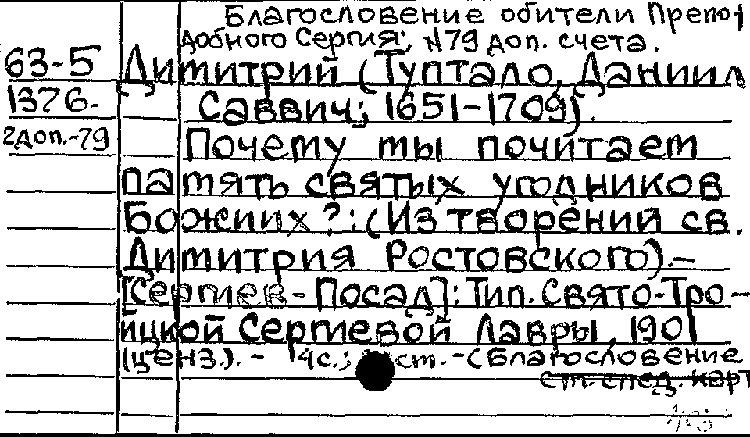 Благословение обители Препо-
добного Сергия, №79 доп. счета.
63-5 Димитрий (Туптало, Даниил
1376. Саввич; 1651-1709).
2 доп.-79 Почему ты почитаем
память святых угодников
Божиих?: (Из творений св.
Димитрия Ростовского).-
[Сергиев-Посад]: Тип. Свято-Тро-
ицкой Сергиевой Лавры, 1901
(ценз.). - 14с.; -(Благословение
см. след. карт